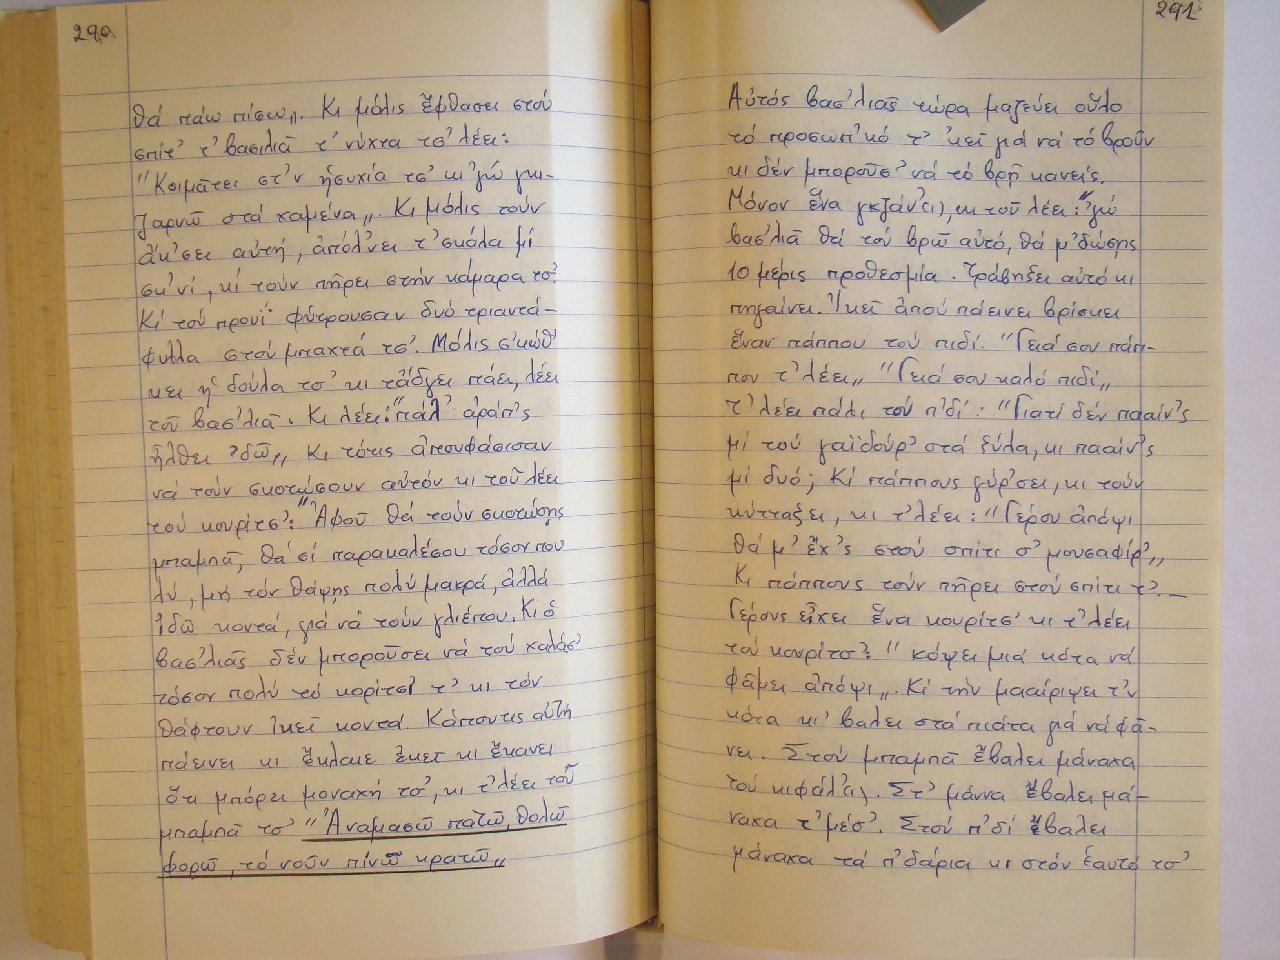 290
θά πάω πίσω„. Κι μόλις ἔφθασει στού
σπίτ' τ' βασιλιᾶ τ' νύχτα τσ' λέει:
"Κοιμᾶτει στ'ν ἡσυχία τσ' κι 'γώ γκι-
ζαρνῶ στά χαμένα„. Κι μόλις τούν
ἄκ'σει αὐτή, ἀπόλ'νει τ' σκάλα μί
σκ'νί, κί τούν πῆρει στήν κάμαρα τσ'.
Κί τού προυί φύτρουσαν δυό τριαντά-
φυλλα στού μπαχτσά τσ'. Μόλις σ'κώθ'
κει ἡ δούλα τσ' κι τἄδγει πάει, λέει
τοῦ βασ'λιᾶ. Κι λέει: "πάλ' ἀράπ'ς
ἦλθει 'δῶ„ Κι τότις ἀπουφάσισαν
νά τούν σκοτώσουν αὐτόν κι τοῦ λέει
τού κουρίτσ': "Ἀφοῦ θά τούν σκοτώσῃς
μπαμπᾶ, θά σί παρακαλέσου τόσον που
λύ, μή τόν θάψῃς πολύ μακρά, ἀλλά
ἰδῶ κοντά, γιά νά τούν γλιέπου. Κι ὁ
βασ'λιᾶς δέν μποροῦσει νά τού χαλάσ'
τόσον πολύ τό κορίτσι τ' κι τόν
θάφτουν ἰκεῖ κοντά. Κάποντις αὐτή
πάεινει κι ἔκλαιε ἐκεῖ κι ἔκανει
ὅτι μπόρει μοναχή τσ', κι τ' λέει τοῦ
μπαμπᾶ τσ' "Ἀναμασῶ πατῶ, θολῶ
φορῶ, τό νοῦν πίνω κρατῶ„
291
Αὐτός βασ'λιᾶς τώρα μαζεύει οὗλο
τό προσωπ'κό τ' 'κεῖ γιά νά τό βροῦν
κι δέν μποροῦσ' νά τό βρῇ κανείς.
Μόνον ἕνα γκζάν'(ι), κι τοῦ λέει: "'γώ
βασ'λιᾶ θά τού βρῶ αὐτό, θά μ' δώσῃς
10 μέρις προθεσμία. Τράβηξει αὐτό κι
πηγαίνει. Ἰκεῖ ἀπού πάεινει βρίσκει
ἕναν πάππου τού πιδί. "Γειά σου πάπ-
που τ' λέει„ "Γειά σου καλό πιδί„
τ' λέει πάλι τού π'δί: "Γιατί δέν πααίν'ς
μί τού γαϊδούρ' στά ξύλα, κι πααίν'ς
μί δυό; Κί πάππους γύρ'σει, κι τούν
κύτταξει, κι τ' λέει: "Γέρου ἀπόψι
θά μ' ἔχ'ς στού σπίτι σ' μουσαφίρ'„
Κι πάππους τούν πῆρει στού σπίτι τ'.
Γέρους εἶχει ἕνα κουρίτσ' κι τ' λέει
τού κουρίτσ': "κόψει μιά κότα νά
φᾶμει ἀπόψι„. Κί τήν μααίριψει τ'ν
κότα κι' βαλει στά πιάτα γιά νά φᾶ-
νει. Στού μπαμπᾶ ἔβαλει μάναχα
τού κιφάλ'(ι). Στ' μάννα ἔβαλει μά-
ναχα τ' μέσ'. Στού π'δί ἔβαλει
μάναχα τά π'δάρια κι στόν ἑαυτό τσ'